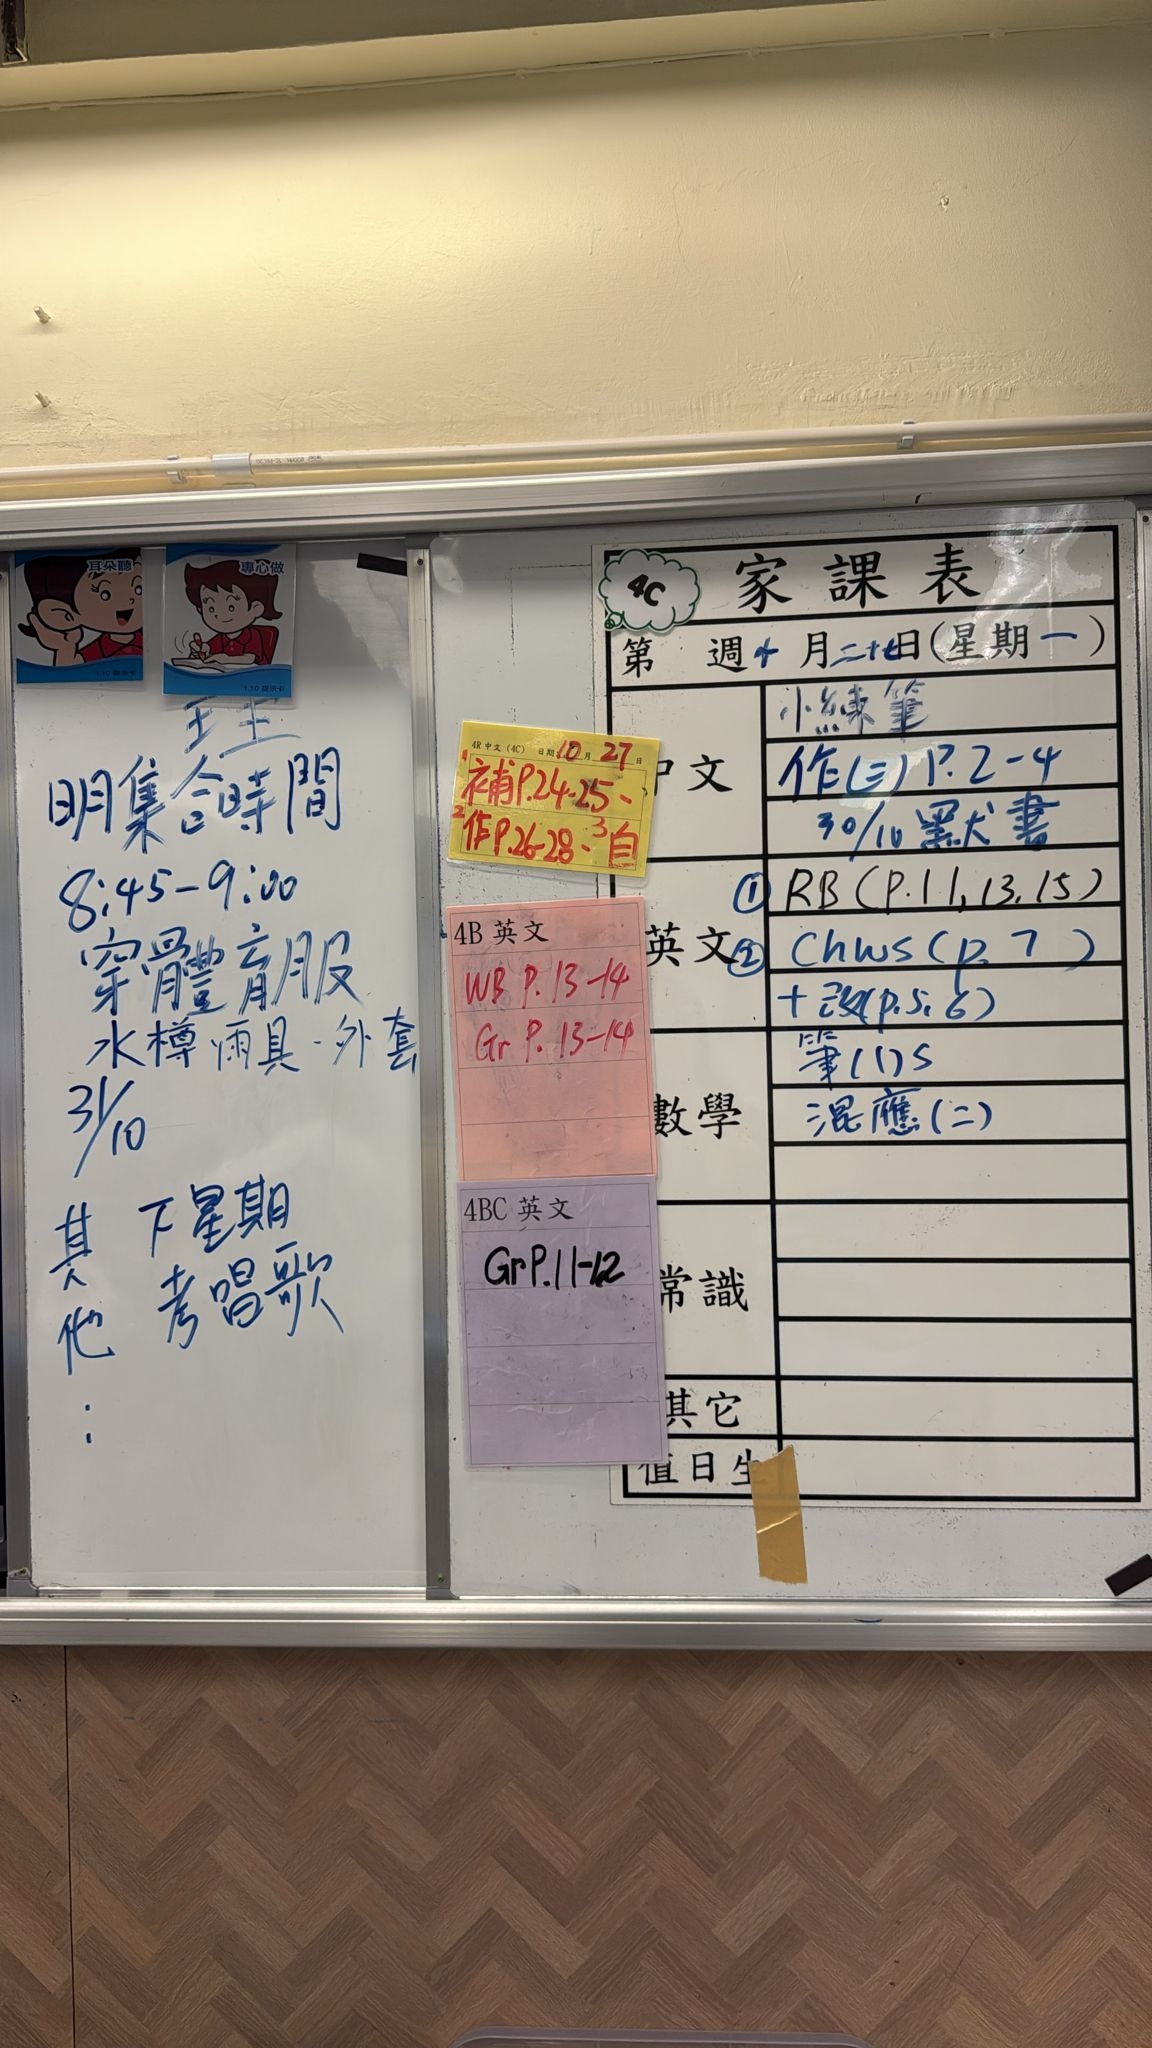 耳朵聽
1:10 提示卡
專心做
1:10 提示卡
明集合時間
8:45-9:00
穿體育服
水樽雨具、外套
31/10
其他:
下星期
考唱歌
4R 中文 (4C) 日期:10月27日
1補P.24-25、
2作P.26-28、3自
4B 英文
WB P.13-14
Gr P.13-14
4BC 英文
Gr P.11-12
4C
家課表
第 週十月二十七日(星期一)
中文
小練筆
作(三) P.2-4
30/10 默書
英文
① RB (P.11,13,15)
② Chws (p.7)
+改(p.5,6)
數學
筆(1)5
混應(二)
常識
其它
值日生